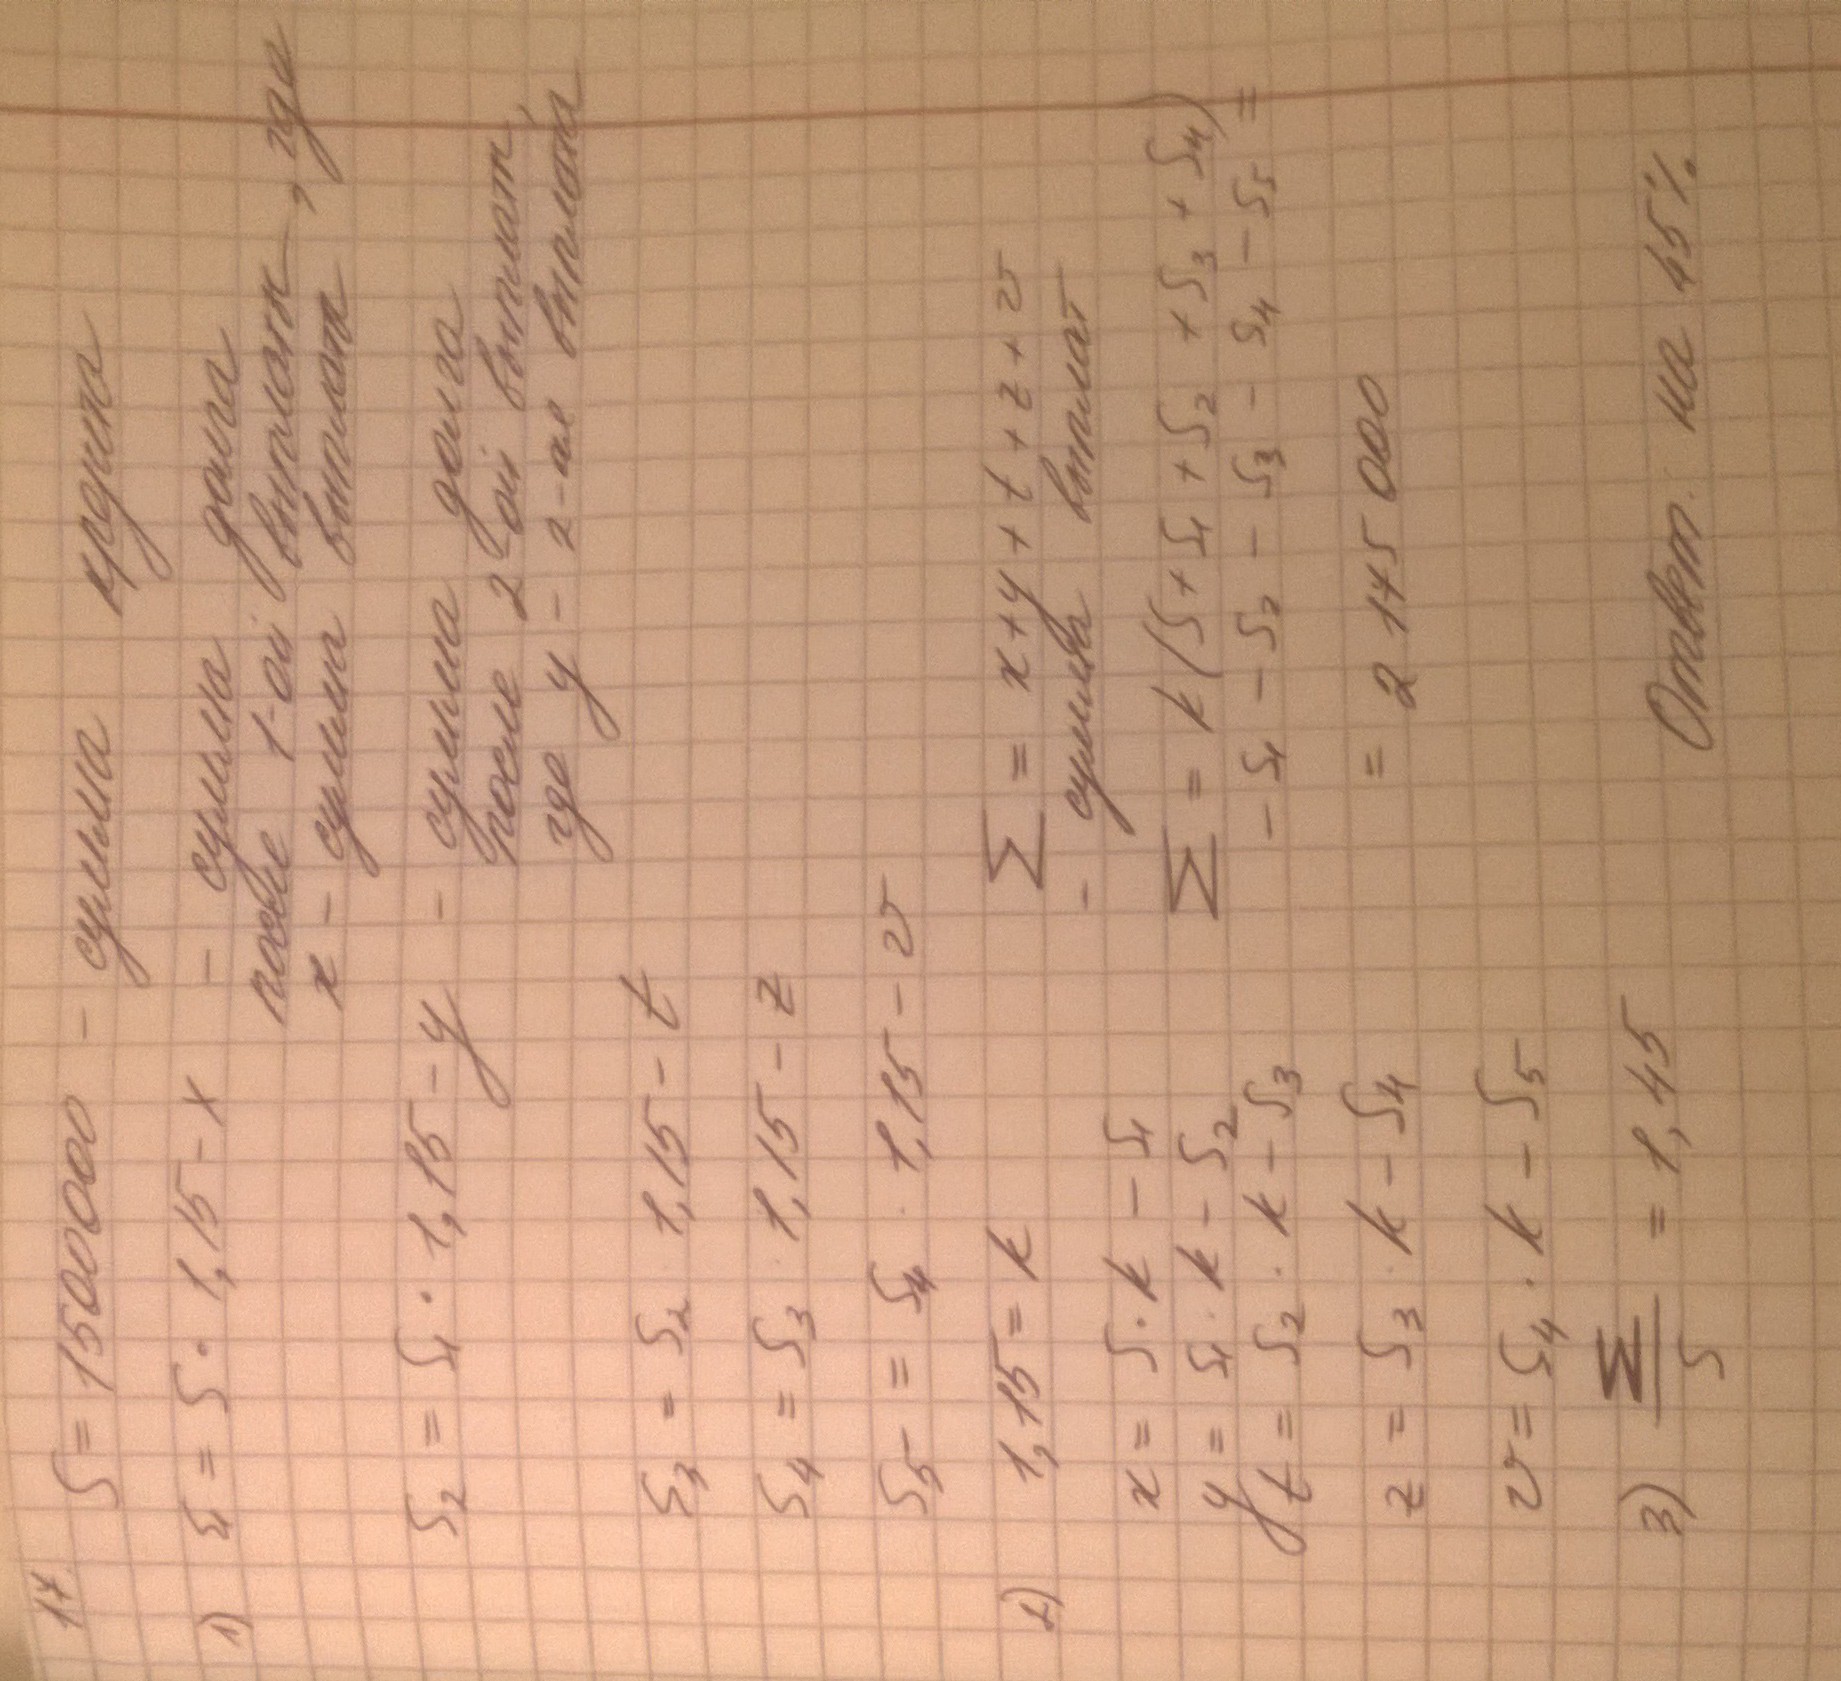 17
S = 1500000 - сумма кредита
1) S1 = S · 1,15 - x - сумма долга
после 1-ой выплаты, где
x - сумма выплат
S2 = S1 · 1,15 - y - сумма долга
после 2ой выплат,
где y - 2-ая выплата
S3 = S2 · 1,15 - t
S4 = S3 · 1,15 - z
S5 = S4 · 1,15 - v
2) 1,15 = k
∑ = x + y + t + z + v
- сумма выплат
x = S · k - S1
y = S1 · k - S2
t = S2 · k - S3
z = S3 · k - S4
v = S4 · k - S5
∑ = k (S + S1 + S2 + S3 + S4)
- S1 - S2 - S3 - S4 - S5 =
= 2 175 000
3) ∑/S = 1,45
Ответ: на 45%